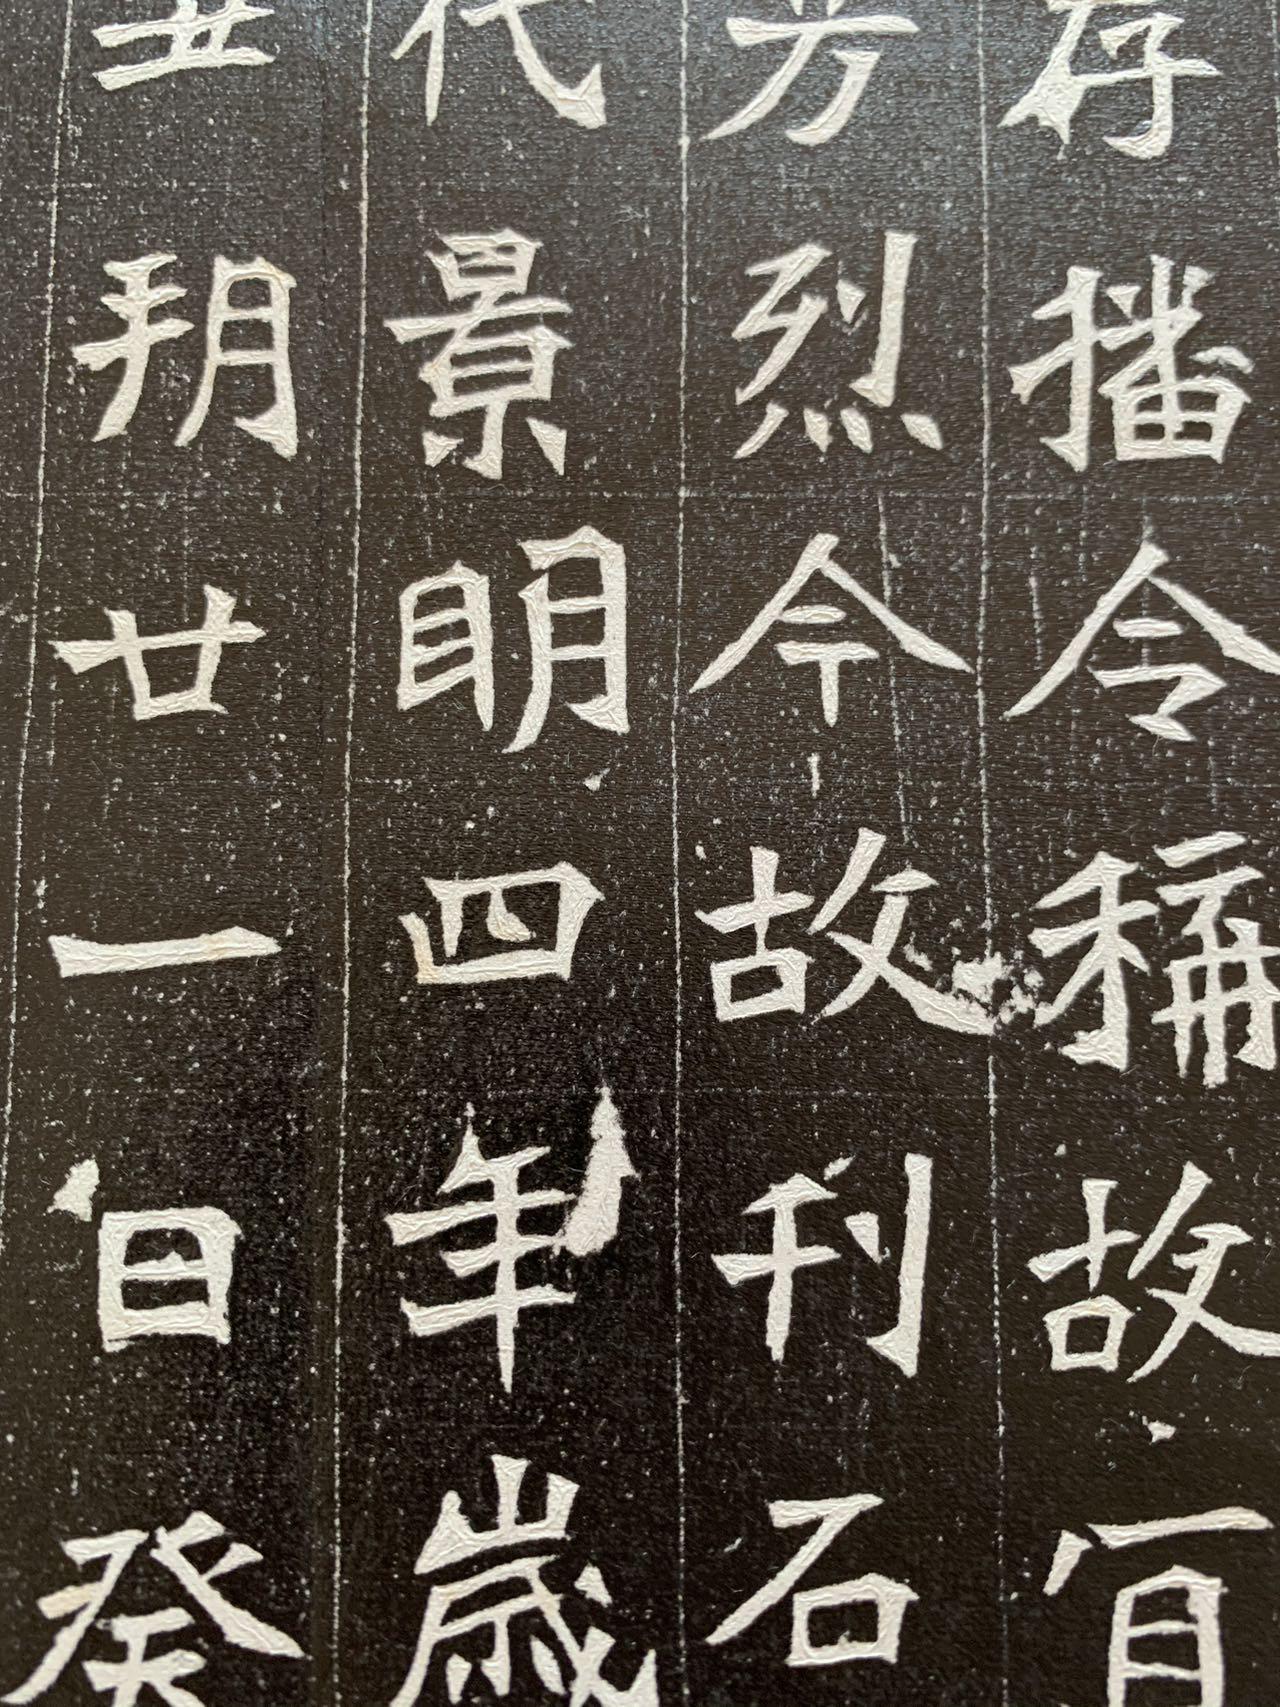 存播令稱故宜
芳烈今故刊石
代景明四年歲
丑朔廿一日癸